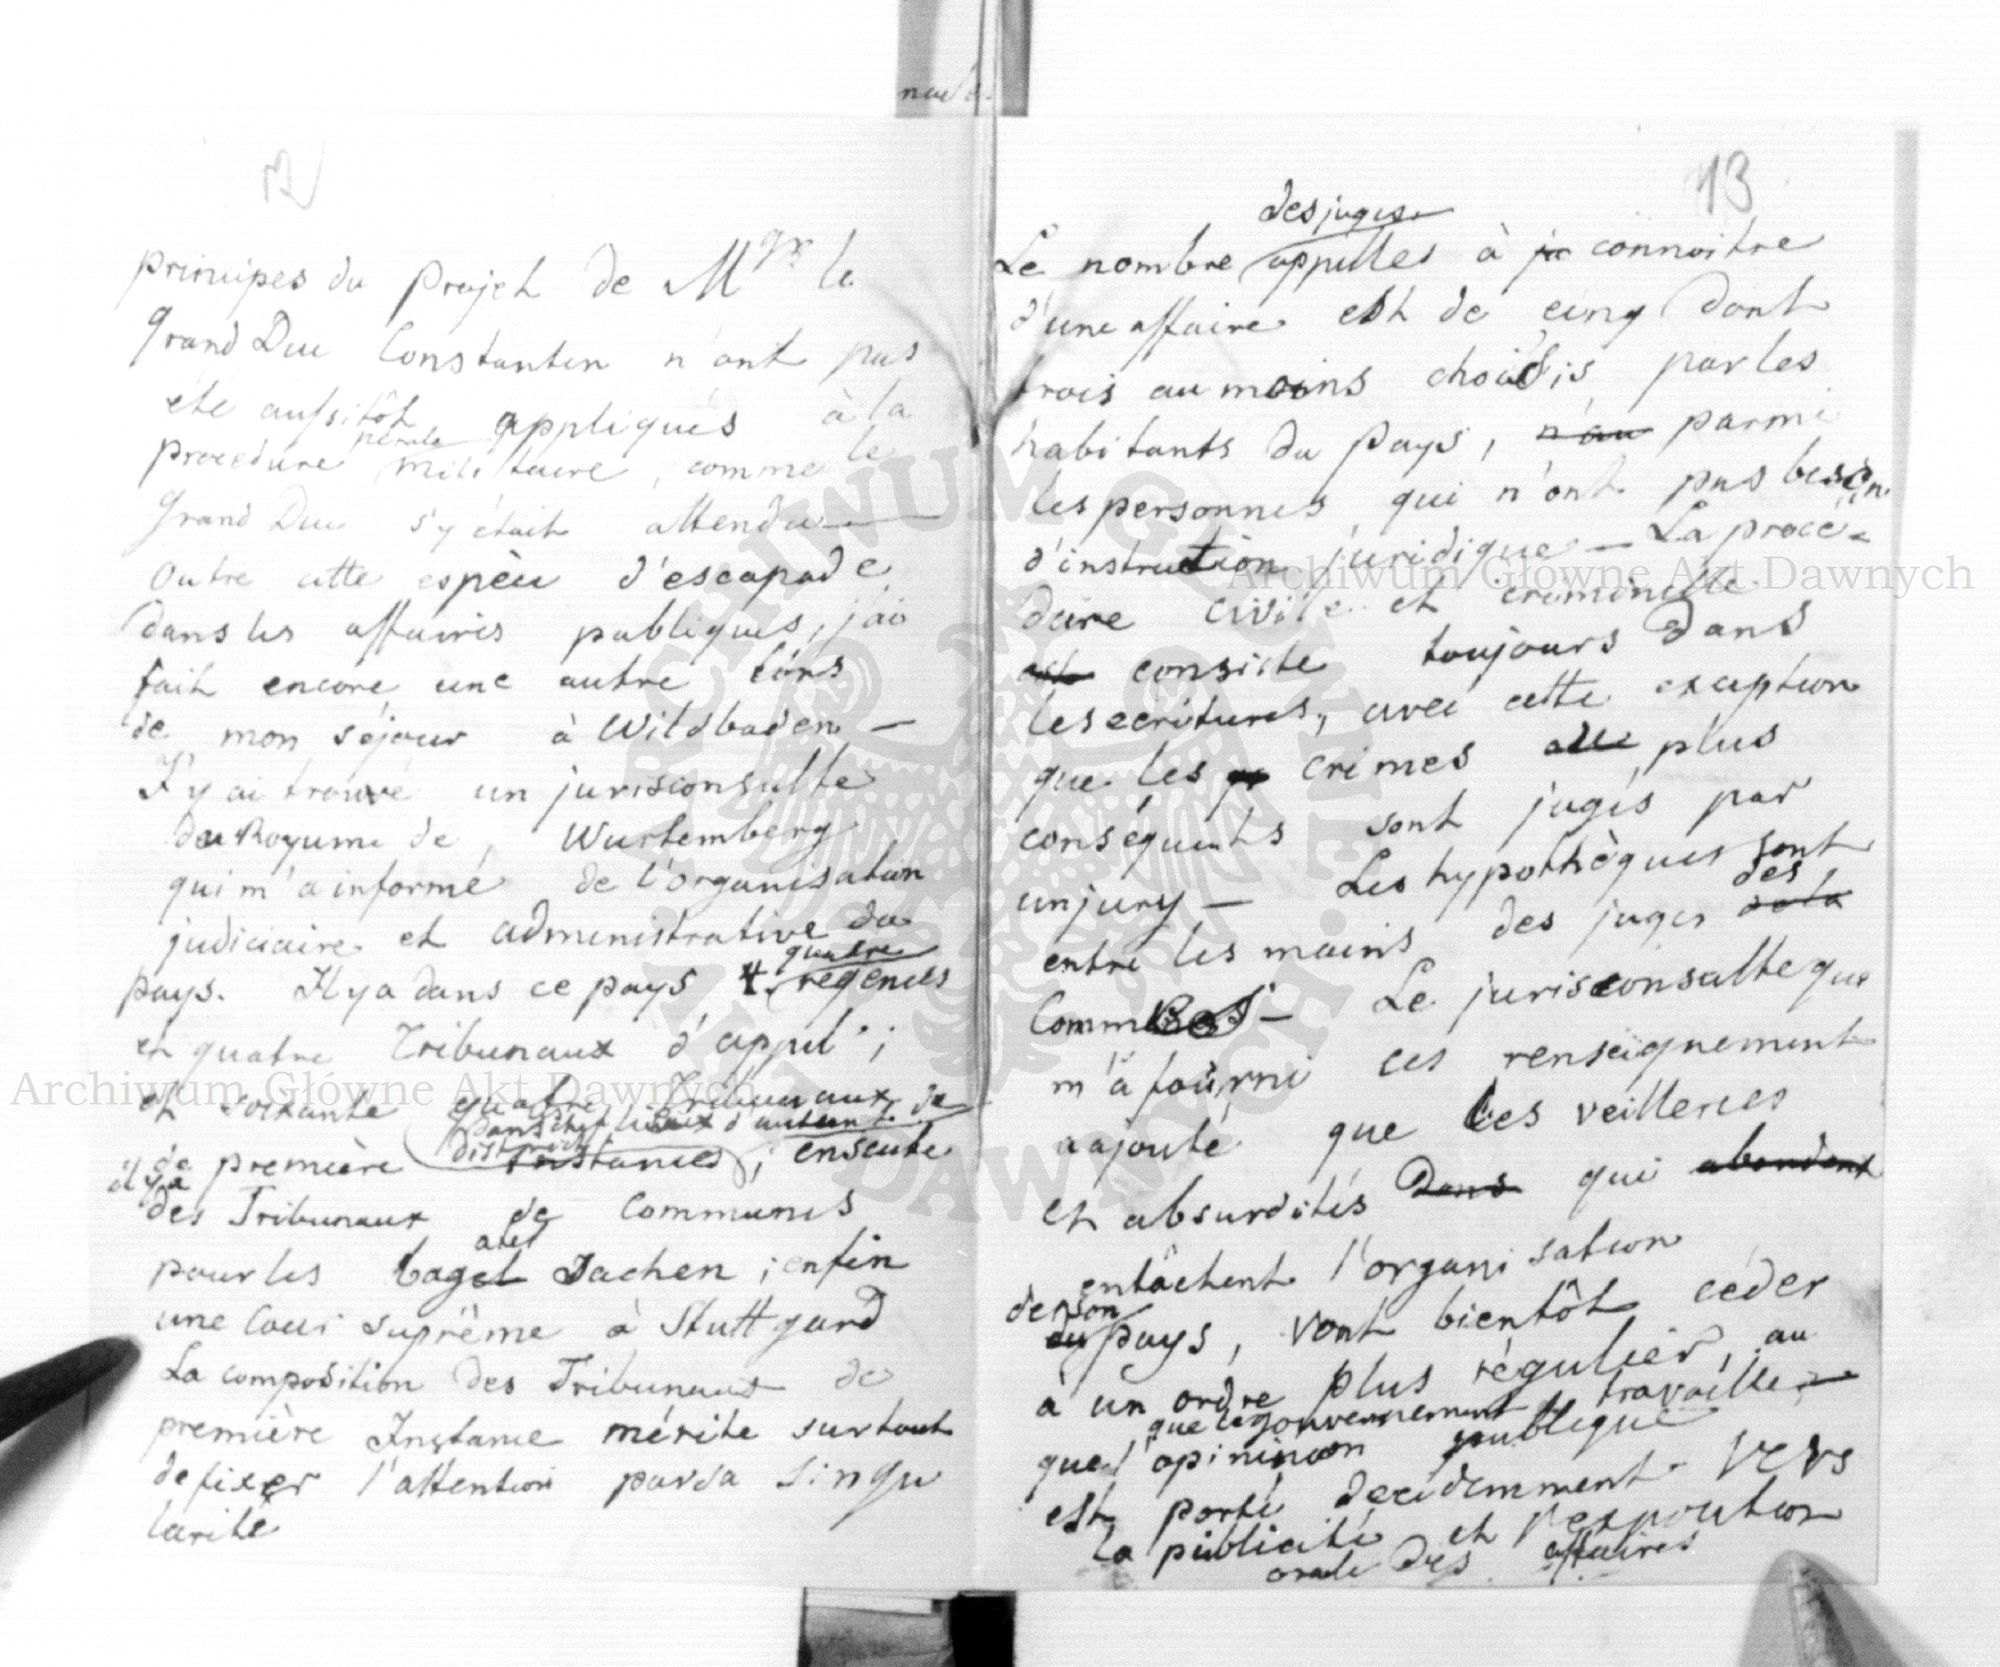 12
principes du Projet de Mgr le
Grand Duc Constantin n'ont pas
été aussitôt appliqués à la
procédure pénale militaire, comme le
Grand Duc s'y était attendu —
Outre cette espèce d'escapade
dans les affaires publiques, j'ai
fait encore une autre lors
de mon séjour à Wildbaden —
J'y ai trouvé un jurisconsulte
du Royume de Wurtemberg
qui m'a informé de l'organisation
judiciaire et administrative du
pays. Il y a dans ce pays 4. quatre régences
et quatre Tribunaux d'appel ;
et soixante quatre Tribunaux de
dans chef lieux d'autant de
districts
de première Instances ; ensuite
il y a
des Tribunaux de Communes
pour les Bagatel Sachen ; enfin
une Cour suprème à Stuttgard
La composition des Tribunaux de
première Instance mérite surtout
de fixer l'attention par sa singu
larité
13
des juges
Le nombre appellés à connoitre
d'une affaire est de cinq dont
trois au moins choisis par les
habitants du pays, n'au parmi
les personnes qui n'ont pas besoin
d'instruction juridique — La procé-
dure civile et criminelle
est consiste toujours dans
les ecritures, avec cette exception
que les crimes plus
conséquents sont jugés par
un jury — Les hypothèques sont
entre les mains des juges des de la
Communes — Le jurisconsulte que
m'a fourni ces renseignement
a ajouté que ces veilleries
et absurdités dans qui abondent
entâchent l'organisation
de son
du pays, vont bientôt céder
à un ordre plus régulier, au
que le gouvernement travaille
que l'opininon publique
est porté decidemment vers
la publicité et l'expoution
orale des affaires
Archiwum Główne Akt Dawnych
Archiwum Główne Akt Dawnych
ARCHIWUM GŁÓWNE AKT DAWNYCH